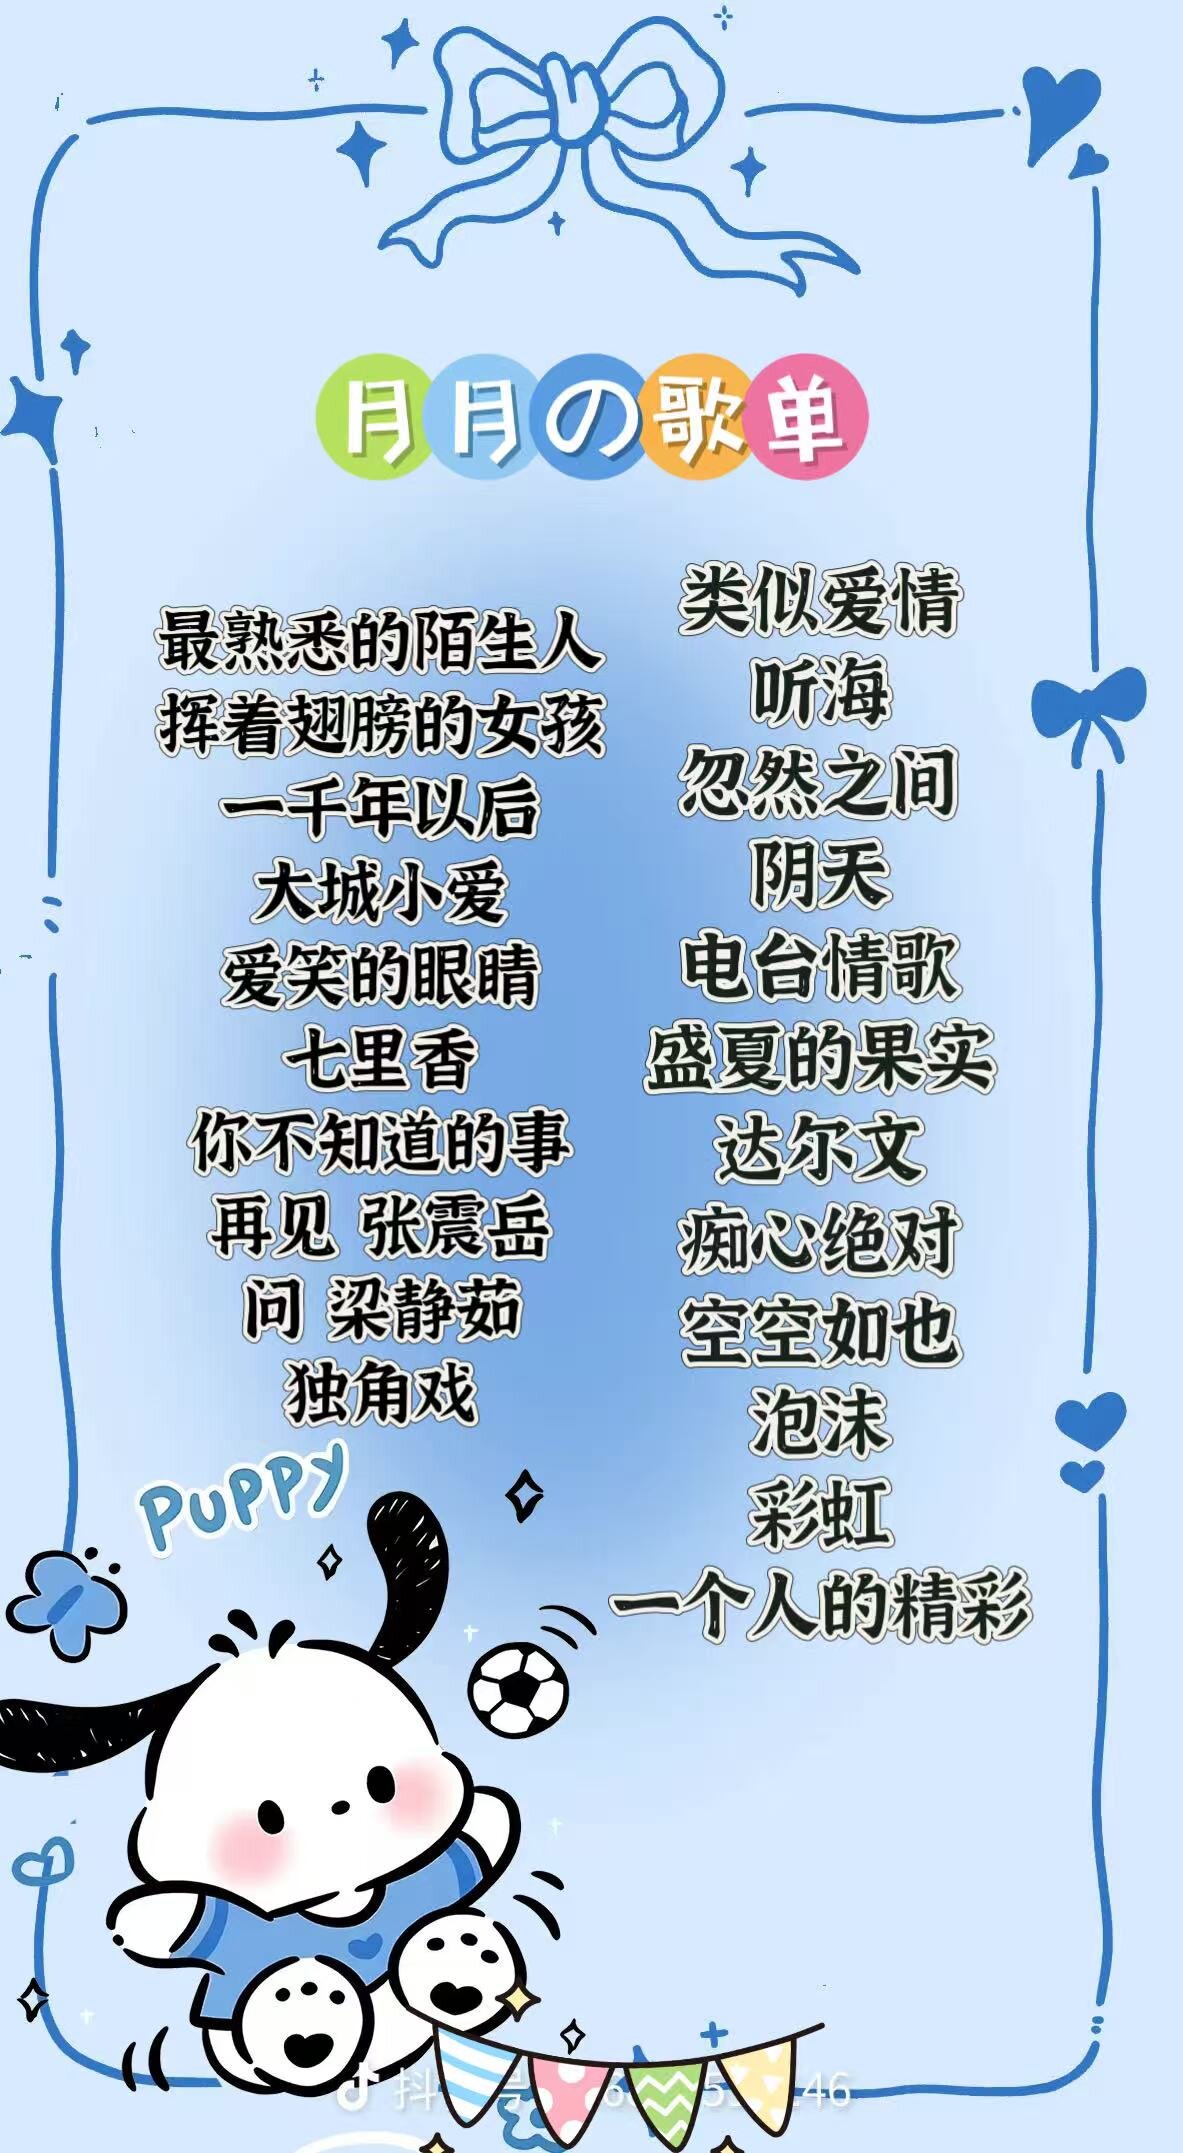 月月の歌单
最熟悉的陌生人
挥着翅膀的女孩
一千年以后
大城小爱
爱笑的眼睛
七里香
你不知道的事
再见 张震岳
问 梁静茹
独角戏
类似爱情
听海
忽然之间
阴天
电台情歌
盛夏的果实
达尔文
痴心绝对
空空如也
泡沫
彩虹
一个人的精彩
PUPPY
抖